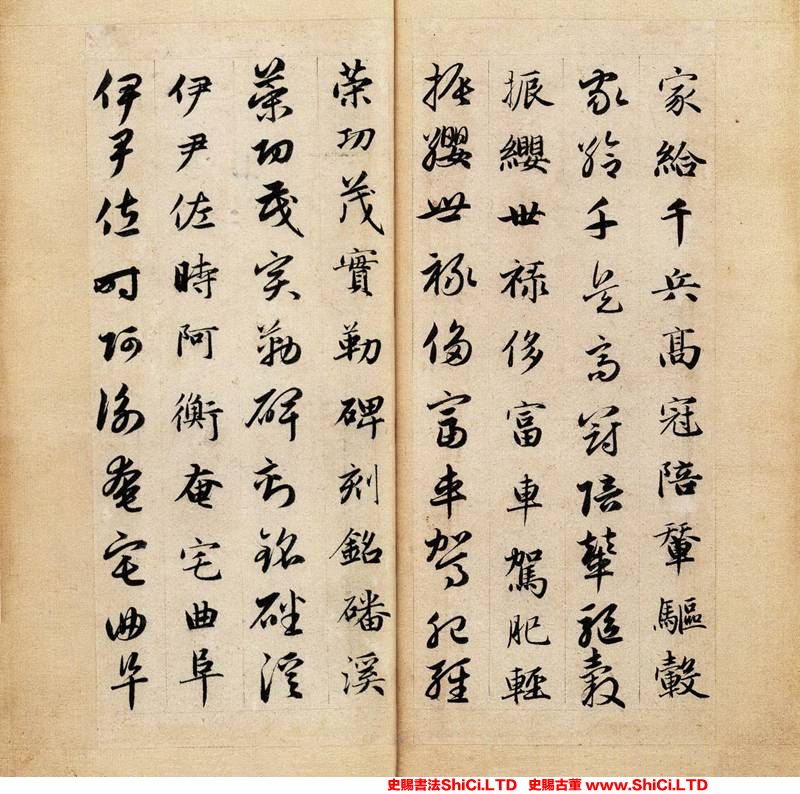 家給千兵高冠陪輦驅轂
家給千兵高冠陪輦驅轂
振纓世祿侈富車駕肥輕
振纓世祿侈富車駕肥輕
策功茂實勒碑刻銘磻溪
策功茂實勒碑刻銘磻溪
伊尹佐時阿衡奄宅曲阜
伊尹佐時阿衡奄宅曲阜
史賜書法ShiCi.LTD 史賜古董 www.ShiCi.LTD